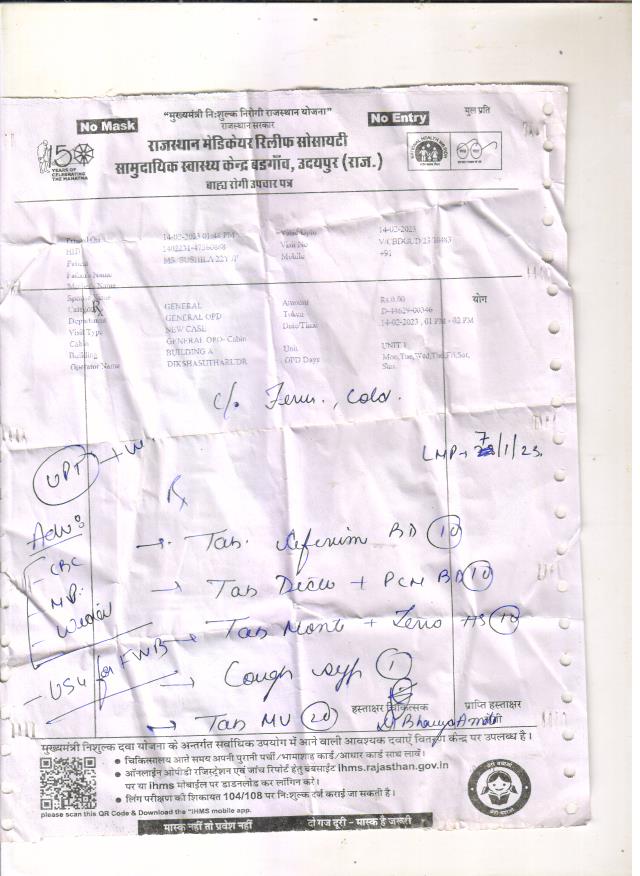 "मुख्यमंत्री निःशुल्क निरोगी राजस्थान योजना"
मूल प्रति
No Mask
राजस्थान सरकार
No Entry
राजस्थान मेडिकेयर रिलीफ सोसायटी
सामुदायिक स्वास्थ्य केन्द्र बडगाँव, उदयपुर (राज.)
बाह्य रोगी उपचार पत्र
150
YEARS OF
CELEBRATING
THE MAHATMA
NATIONAL HEALTH MISSION
14-02-2023 01:48 PM
14-02-2023
HID
Visit No
MS. SUSHILA 22Y /F
Mobile
+91
GENERAL
Amount
Rs.0.00
योग
GENERAL OPD
Token
D-44629-00346
Visit Type
NEW CASE
Date/Time
14-02-2023 , 01 PM - 02 PM
GENERAL OPD- Cabin
Unit
UNIT 1
Building
BUILDING A
OPD Days
Mon,Tue,Wed,Thu,Fri,Sat,
Operator Name
DIKSHASUTHARUDR
Sun
c/o Fever, Cold.
UPT
LMP → 7/1/23.
Rx
Adv:
→ Tab. Cefixim BD 10
- CBC
→ Tab Diclo + PCM BD 10
- MP
- Widal
→ Tab Mont + Levo HS 10
- USG for FWB
→ Cough syp 1
हस्ताक्षर चिकित्सक
प्राप्ति हस्ताक्षर
→ Tab MV 20
मुख्यमंत्री निशुल्क दवा योजना के अन्तर्गत सर्वाधिक उपयोग में आने वाली आवश्यक दवायें वितरण केन्द्र पर उपलब्ध है।
• चिकित्सालय आते समय अपनी पुरानी पर्ची/भामाशाह कार्ड/आधार कार्ड साथ लावें।
• ऑनलाईन ओपीडी रजिस्ट्रेशन एवं जांच रिपोर्ट हेतु वेबसाईट ihms.rajasthan.gov.in
पर या ihms मोबाईल पर डाउनलोड कर लॉगिन करे।
• लिंग परीक्षण की शिकायत 104/108 पर निःशुल्क दर्ज कराई जा सकती है।
please scan this QR Code & Download the "IHMS mobile app.
मास्क नहीं तो प्रवेश नहीं
दो गज दूरी - मास्क है जरूरी